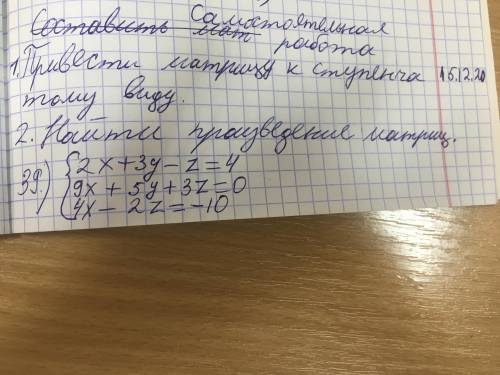 Составить мат Самостоятельная
работа
1. Привести матрицу к ступенча 15.12.20
тому виду.
2. Найти произведение матриц.
39.) 2x+3y-z=4
9x+5y+3z=0
4x-2z=-10